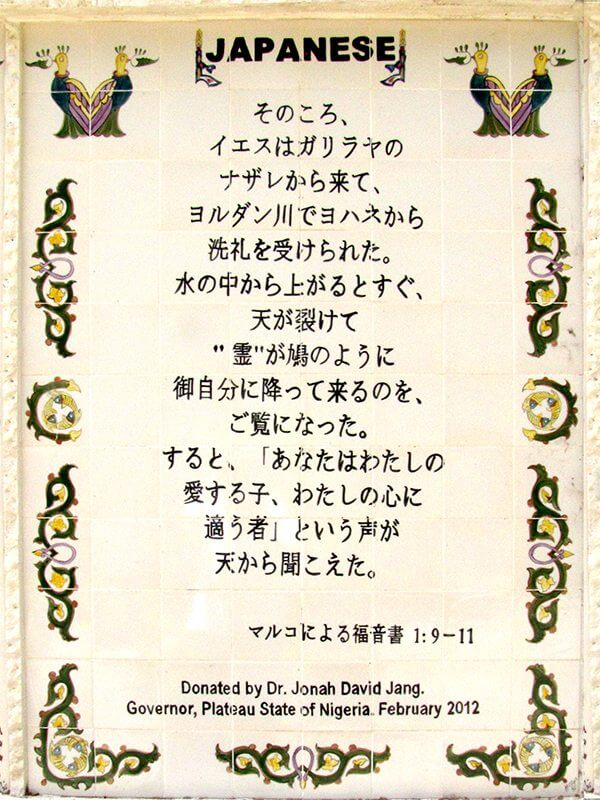 JAPANESE
そのころ、
イエスはガリラヤの
ナザレから来て、
ヨルダン川でヨハネから
洗礼を受けられた。
水の中から上がるとすぐ、
天が裂けて
"霊"が鳩のように
御自分に降って来るのを、
ご覧になった。
すると、「あなたはわたしの
愛する子、わたしの心に
適う者」という声が
天から聞こえた。
マルコによる福音書 1:9-11
Donated by Dr. Jonah David Jang.
Governor, Plateau State of Nigeria. February 2012